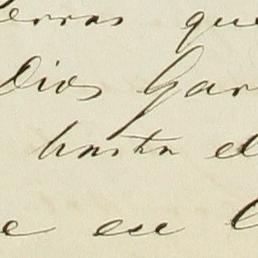 erras que
Dios Gar
hasta el
e ese l